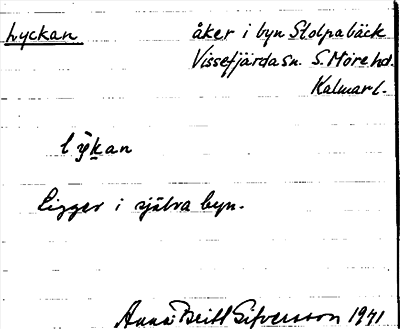 Lyckan åker i byn Stolpabäck
Vissefjärda sn. S. Möre hd.
Kalmar l.
lỳkan
Ligger i själva byn.
Anna-Britt Sifversson 1971